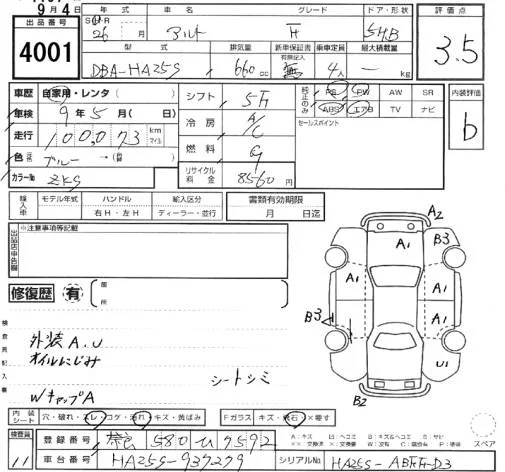 9月4日
出品番号 4001
年式 車名 グレード ドア・形状
26 月 アルト 5H.B
型式 排気量 新車保証書 有無記入 乗車定員 最大積載量
DBA-HA25S 660cc 無 4人 — kg
評価点
3.5
内装評価
b
車歴 自家用・レンタ ( )
車検 9年5月( 日)
走行 100,073 km マイル
色 ブルー → ( )
カラーNo ZKS
シフト 5F
冷房 A/C
燃料 G
リサイクル料金 8560円
純正のみ
PS PW AW SR
ABS エアB TV ナビ
セールスポイント
輸入車 モデル年式 ハンドル 輸入区分
右H・左H ディーラー・並行
書類有効期限
月 日迄
※注意事項等記載
出品店申告欄
修復歴 有 箇所
検査員記入書
外装A.U
オイルにじみ
シートシミ
WキャップA
A2
A1 B3
A1 A1
B3 A1
U1
B2
内装シート 穴・破れ・スレ・コゲ・汚れ・キズ・黄ばみ
Fガラス キズ・飛石・×要す
A:キズ U:ヘコミ B:キズ&ヘコミ S:サビ
スペア
検査員 11
登録番号 580 ㋒ 7592
車台番号 HA25S-937279
シリアルNo HA25S-ABFF-D3